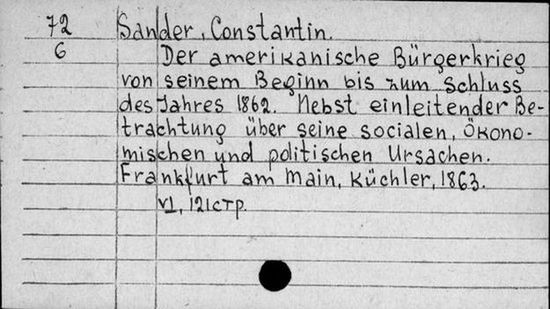 72 Sander, Constantin.
6 Der amerikanische Bürgerkrieg
von seinem Beginn bis zum Schluss
des Jahres 1862. Nebst einleitender Be-
trachtung über seine socialen, Ökono-
mischen und politischen Ursachen.
Frankfurt am Main, Küchler, 1863.
VI, 121 стр.